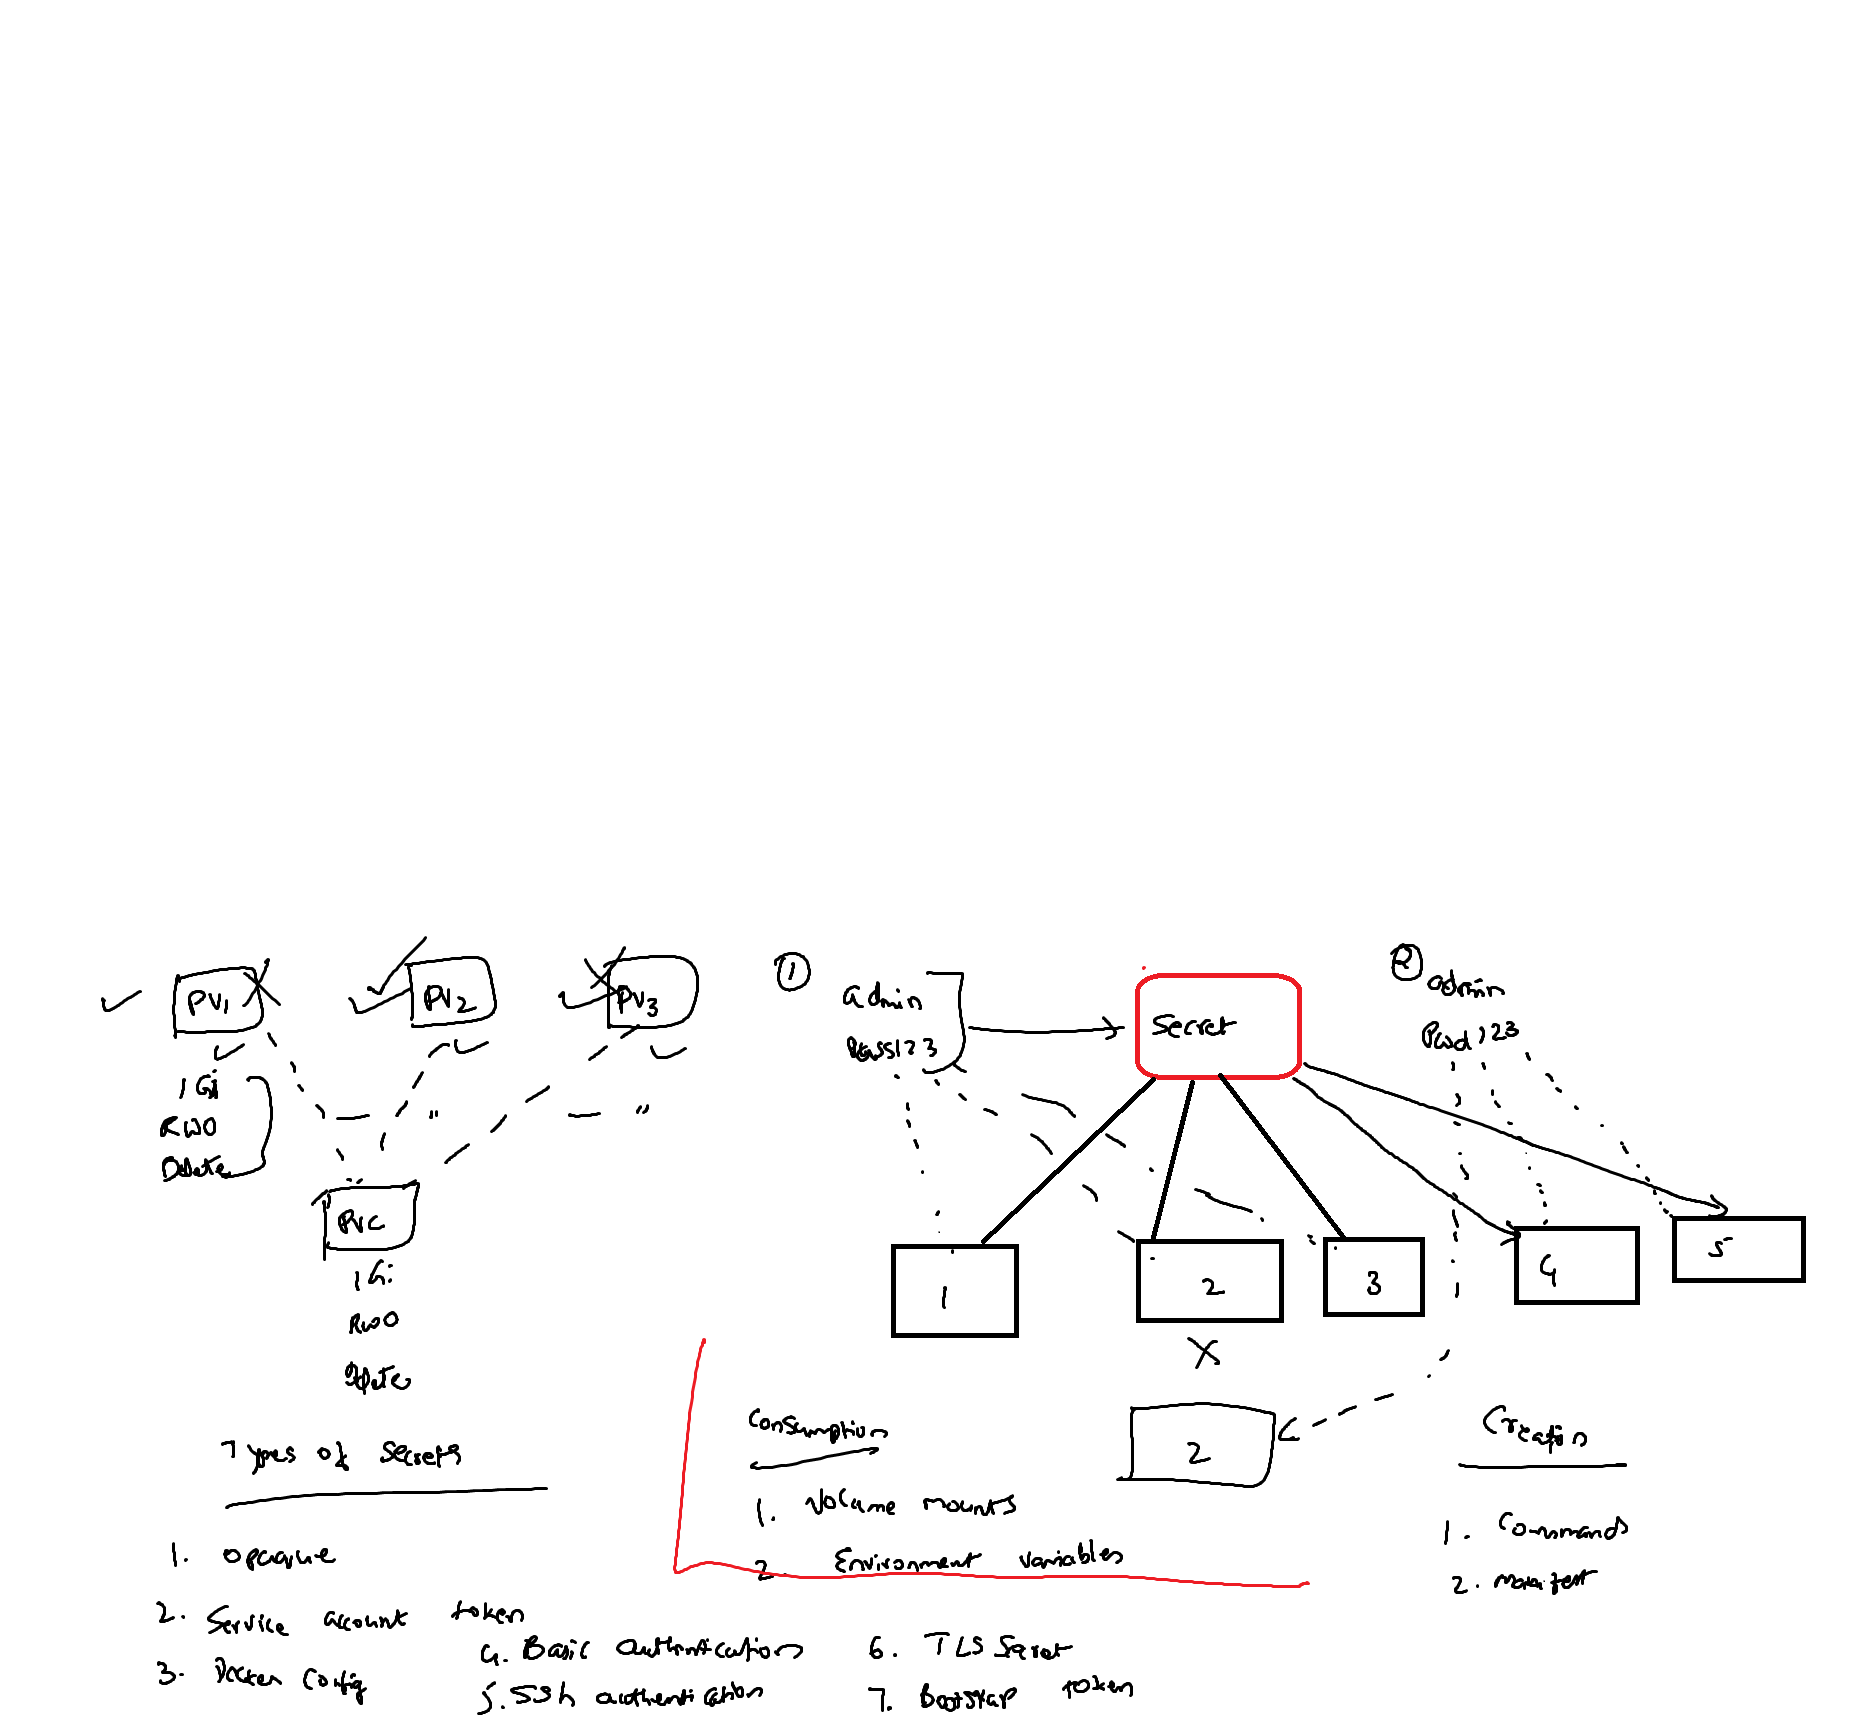 PV1
PV2
PV3
1Gi
RWO
Delete
"
"
PVC
1Gi
RWO
Delete
1
admin
Pass123
Secret
2
admin
Pwd123
1
2
3
4
5
X
2
Types of Secrets
1. opaque
2. Service account token
3. Docker Config
4. Basic authentication
5. SSh authentication
6. TLS Secret
7. Bootstrap token
Consumption
1. Volume mounts
2. Environment variables
Creation
1. Commands
2. Manifest